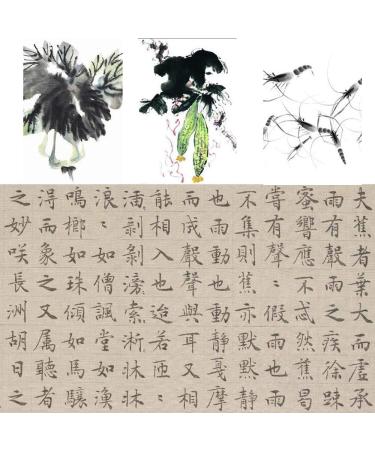 夫蕉者葉大而虛承
雨有聲雨之疾徐疎
密響應不忒然蕉曷
嘗有聲〻假雨也雨
不集則蕉亦默默靜
也雨動也動靜戛摩
而成聲聲與耳又相
能相入也迨若匝〻
剝剝索淅
浪〻如僧諷堂如漁
鳴榔如珠傾如馬驤
淂而象之又属聽者
之妙咲長洲胡日之